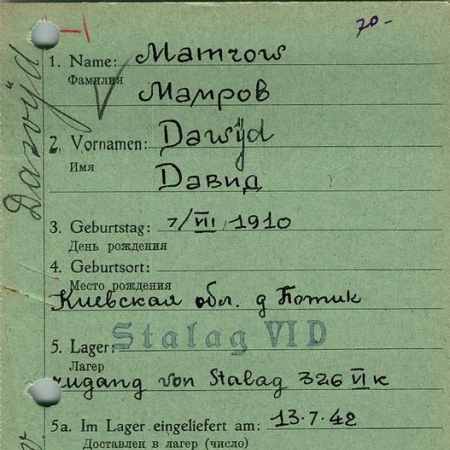 70-
1. Name: Mamrow
Фамилия
Мамров
2. Vornamen: Dawÿd
Имя
Давид
Dawÿd
3. Geburtstag: 7/VII, 1910
День рождения
4. Geburtsort:
Место рождения
Киевская обл. д Потик
Stalag VI D
5. Lager:
Лагер
zugang von Stalag 326 VI K
5a. Im Lager eingeliefert am: 13.7.42
Доставлен в лагер (число)